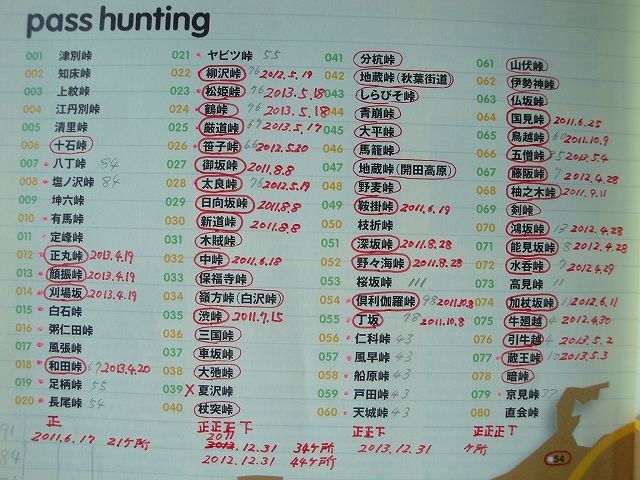 pass hunting
001 津別峠
002 知床峠
003 上紋峠
004 江丹別峠
005 清里峠
006 十石峠
007 八丁峠 84
008 塩ノ沢峠 84
009 坤六峠
010 有馬峠
011 定峰峠
012 正丸峠 2013.4.19
013 顔振峠 2013.4.19
014 刈場坂 2013.4.19
015 白石峠
016 粥仁田峠
017 風張峠
018 和田峠 67 2013.4.20
019 足柄峠 55
020 長尾峠 54
正
2011.6.17 21ヶ所
021 ヤビツ峠 55
022 柳沢峠 76 2012.5.19
023 松姫峠 76 2013.5.18
024 鶴峠 76 2013.5.18
025 厳道峠 67 2013.5.17
026 笹子峠 66 2012.5.20
027 御坂峠 2011.8.8
028 太良峠 76 2012.5.19
029 日向坂峠 2011.8.8
030 新道峠 2011.8.8
031 木賊峠
032 中峠 2011.6.18
033 保福寺峠
034 嶺方峠(白沢峠)
035 渋峠 2011.7.15
036 三国峠
037 車坂峠
038 大弛峠
039 × 夏沢峠
040 杖突峠
正正下
2011.12.31 34ヶ所
2012.12.31 44ヶ所
041 分杭峠
042 地蔵峠(秋葉街道)
043 しらびそ峠
044 青崩峠
045 大平峠
046 馬籠峠
047 地蔵峠(開田高原)
048 野麦峠
049 鞍掛峠 2011.6.19
050 枝折峠
051 深坂峠 2011.8.28
052 野々海峠 2011.8.28
053 桜坂峠 111
054 倶利伽羅峠 98 2011.10.8
055 丁坂 98 2011.10.8
056 仁科峠 43
057 風早峠 43
058 船原峠 43
059 戸田峠 43
060 天城峠 43
正正下
2013.12.31 ヶ所
061 山伏峠
062 伊勢神峠
063 仏坂峠
064 国見峠 2011.6.25
065 鳥越峠 60 2011.10.9
066 五僧峠 2013.5.4
067 藤阪峠 7 2012.4.28
068 柚之木峠 2011.9.11
069 剣峠
070 鴻坂峠 13 2012.4.28
071 能見坂峠 8 2012.4.28
072 水呑峠 12 2012.4.29
073 高見峠 11
074 加杖坂峠 12 2012.6.11
075 牛廻越 4 2012.4.30
076 引牛越 4 2013.5.2
077 蔵王峠 10 2013.5.3
078 暗峠
079 京見峠 33
080 直会峠
正正正丅
54
91
84